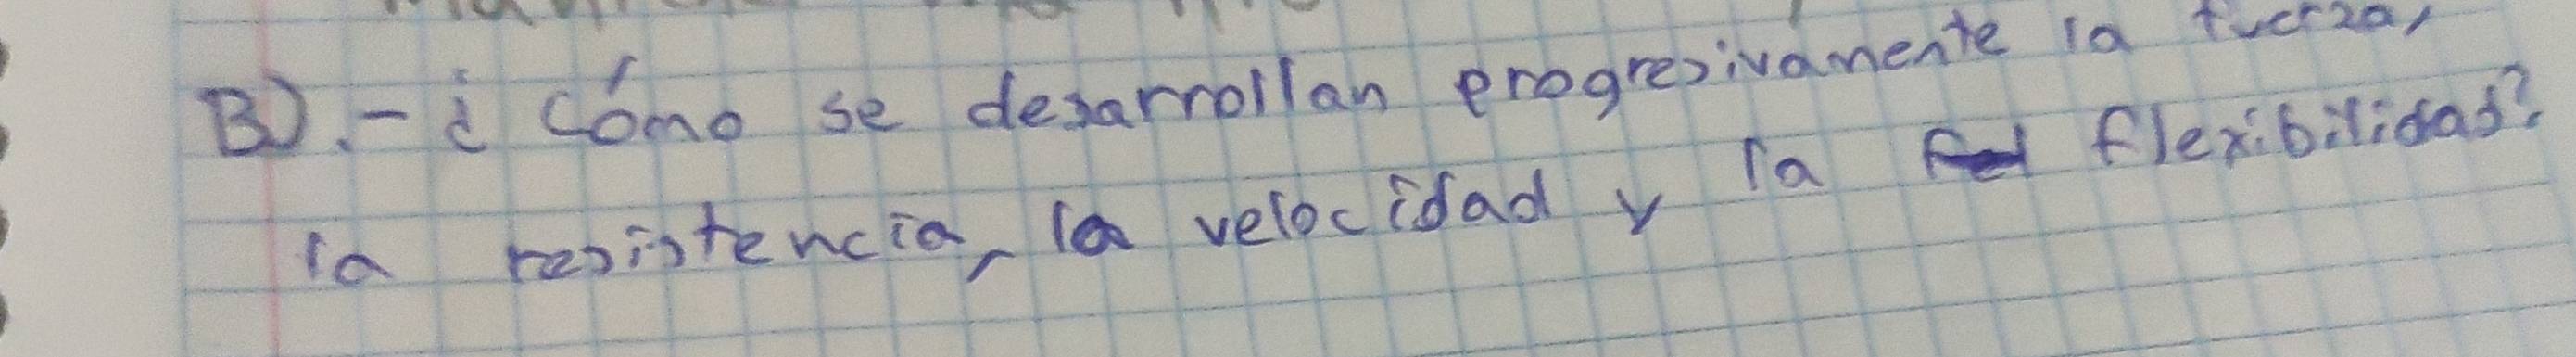 B).- ¿Cómo se desarrollan progresivamente la fuerza,
la resistencia, la velocidad y la flexibilidad?